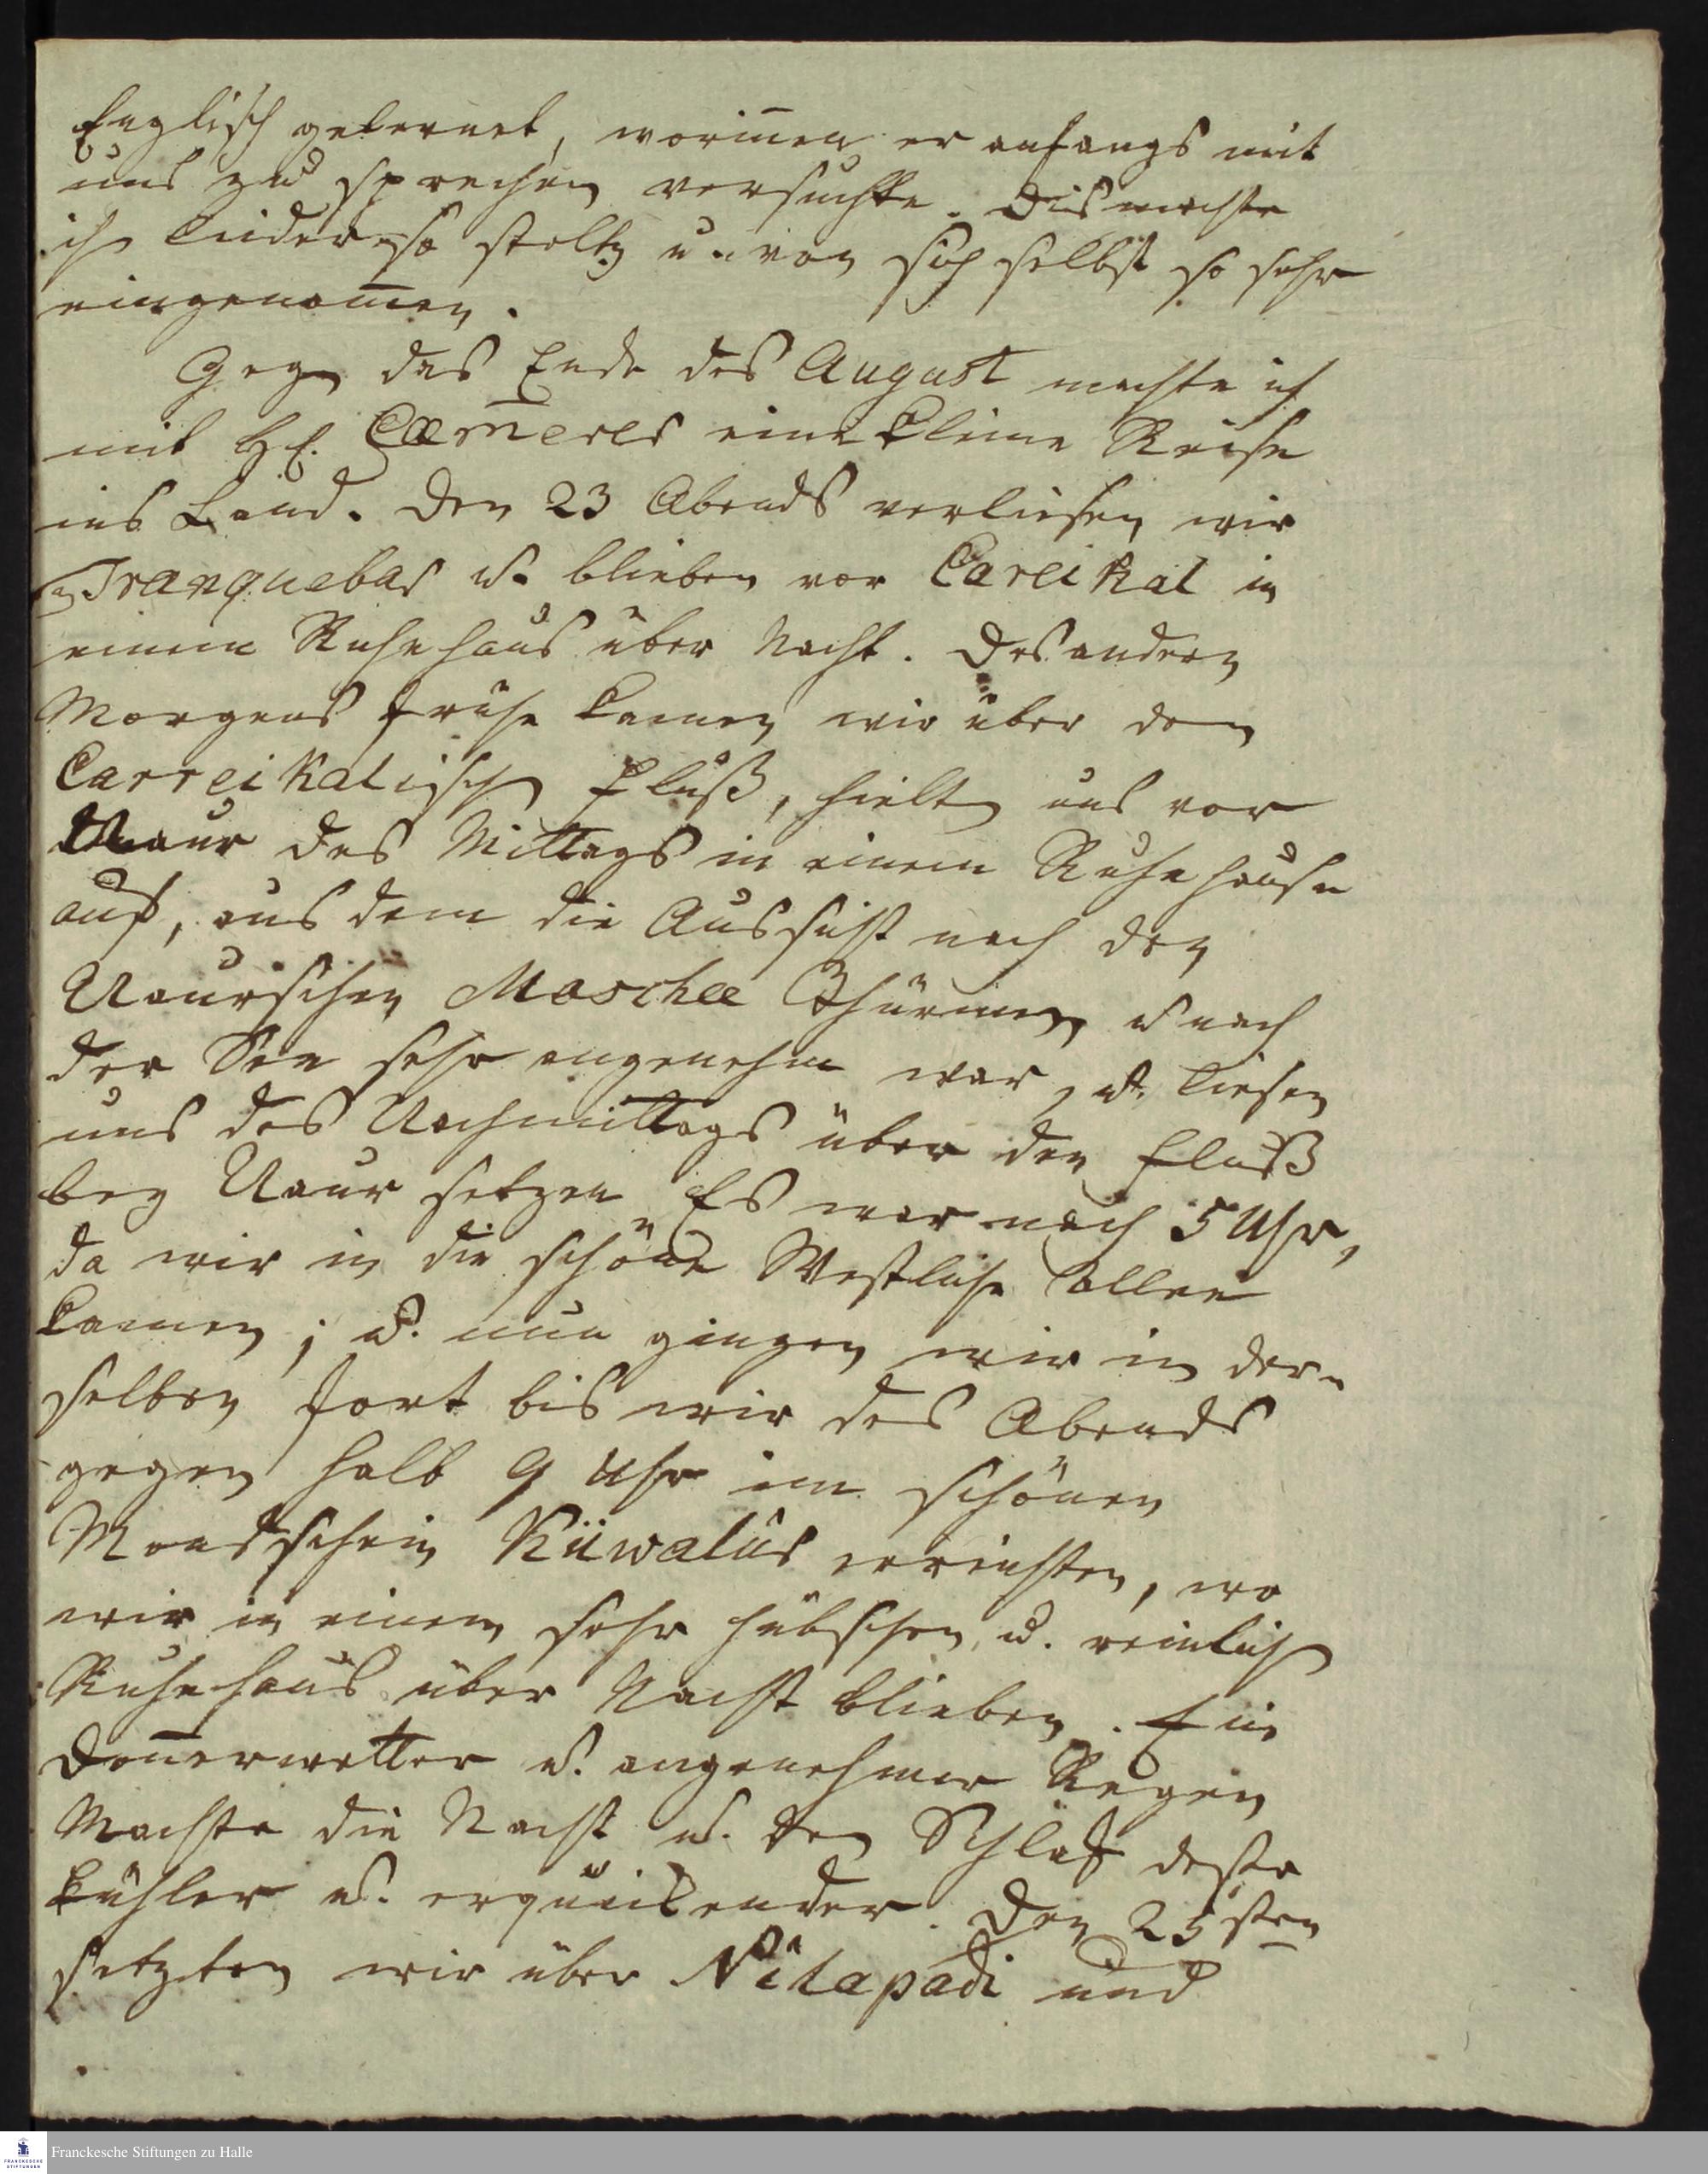 Englisch gelernet, worin̄en er anfangs mit
uns zu sprechen versuchte. Dis machte
ih leider so stoltz u. von sich selbst so sehr
eingenom̄en.
Geg das Ende des August machte ich
mit H. Cam̄erer eine kleine Reise
ins Land. Den 23 Abends verliesen wir
Tranquebar u. blieben vor Careikal in
einem Ruhehaus über Nacht. Des andern
Morgens frühe kamen wir über den
Carreikalisch Fluß, hielt uns vor
Naur des Mittags in einem Ruhehause
auf, aus dem die Aussicht nach den
Naurschen Moschee Thürmen u nach
der See sehr angenehm war, u. liesen
uns des Nachmittags über den Fluß
bey Naur setzen Es war nach 5 Uhr,
da wir in die schöne Westliche Allee
kamen; u. nun gingen wir in der-
selben fort bis wir des Abends
gegen halb 9 Uhr im schönen
Mondschein Küwalur erreichten, wo
wir in einem sehr hübschen u. reinlich
Ruhehaus über Nacht blieben. Ein
Don̄erwetter u. angenehmer Regen
Machte die Nacht u. den Schlaf desto
kühler u. erquickender. Den 25sten
setzten wir über Nilapadi und
Franckesche Stiftungen zu Halle